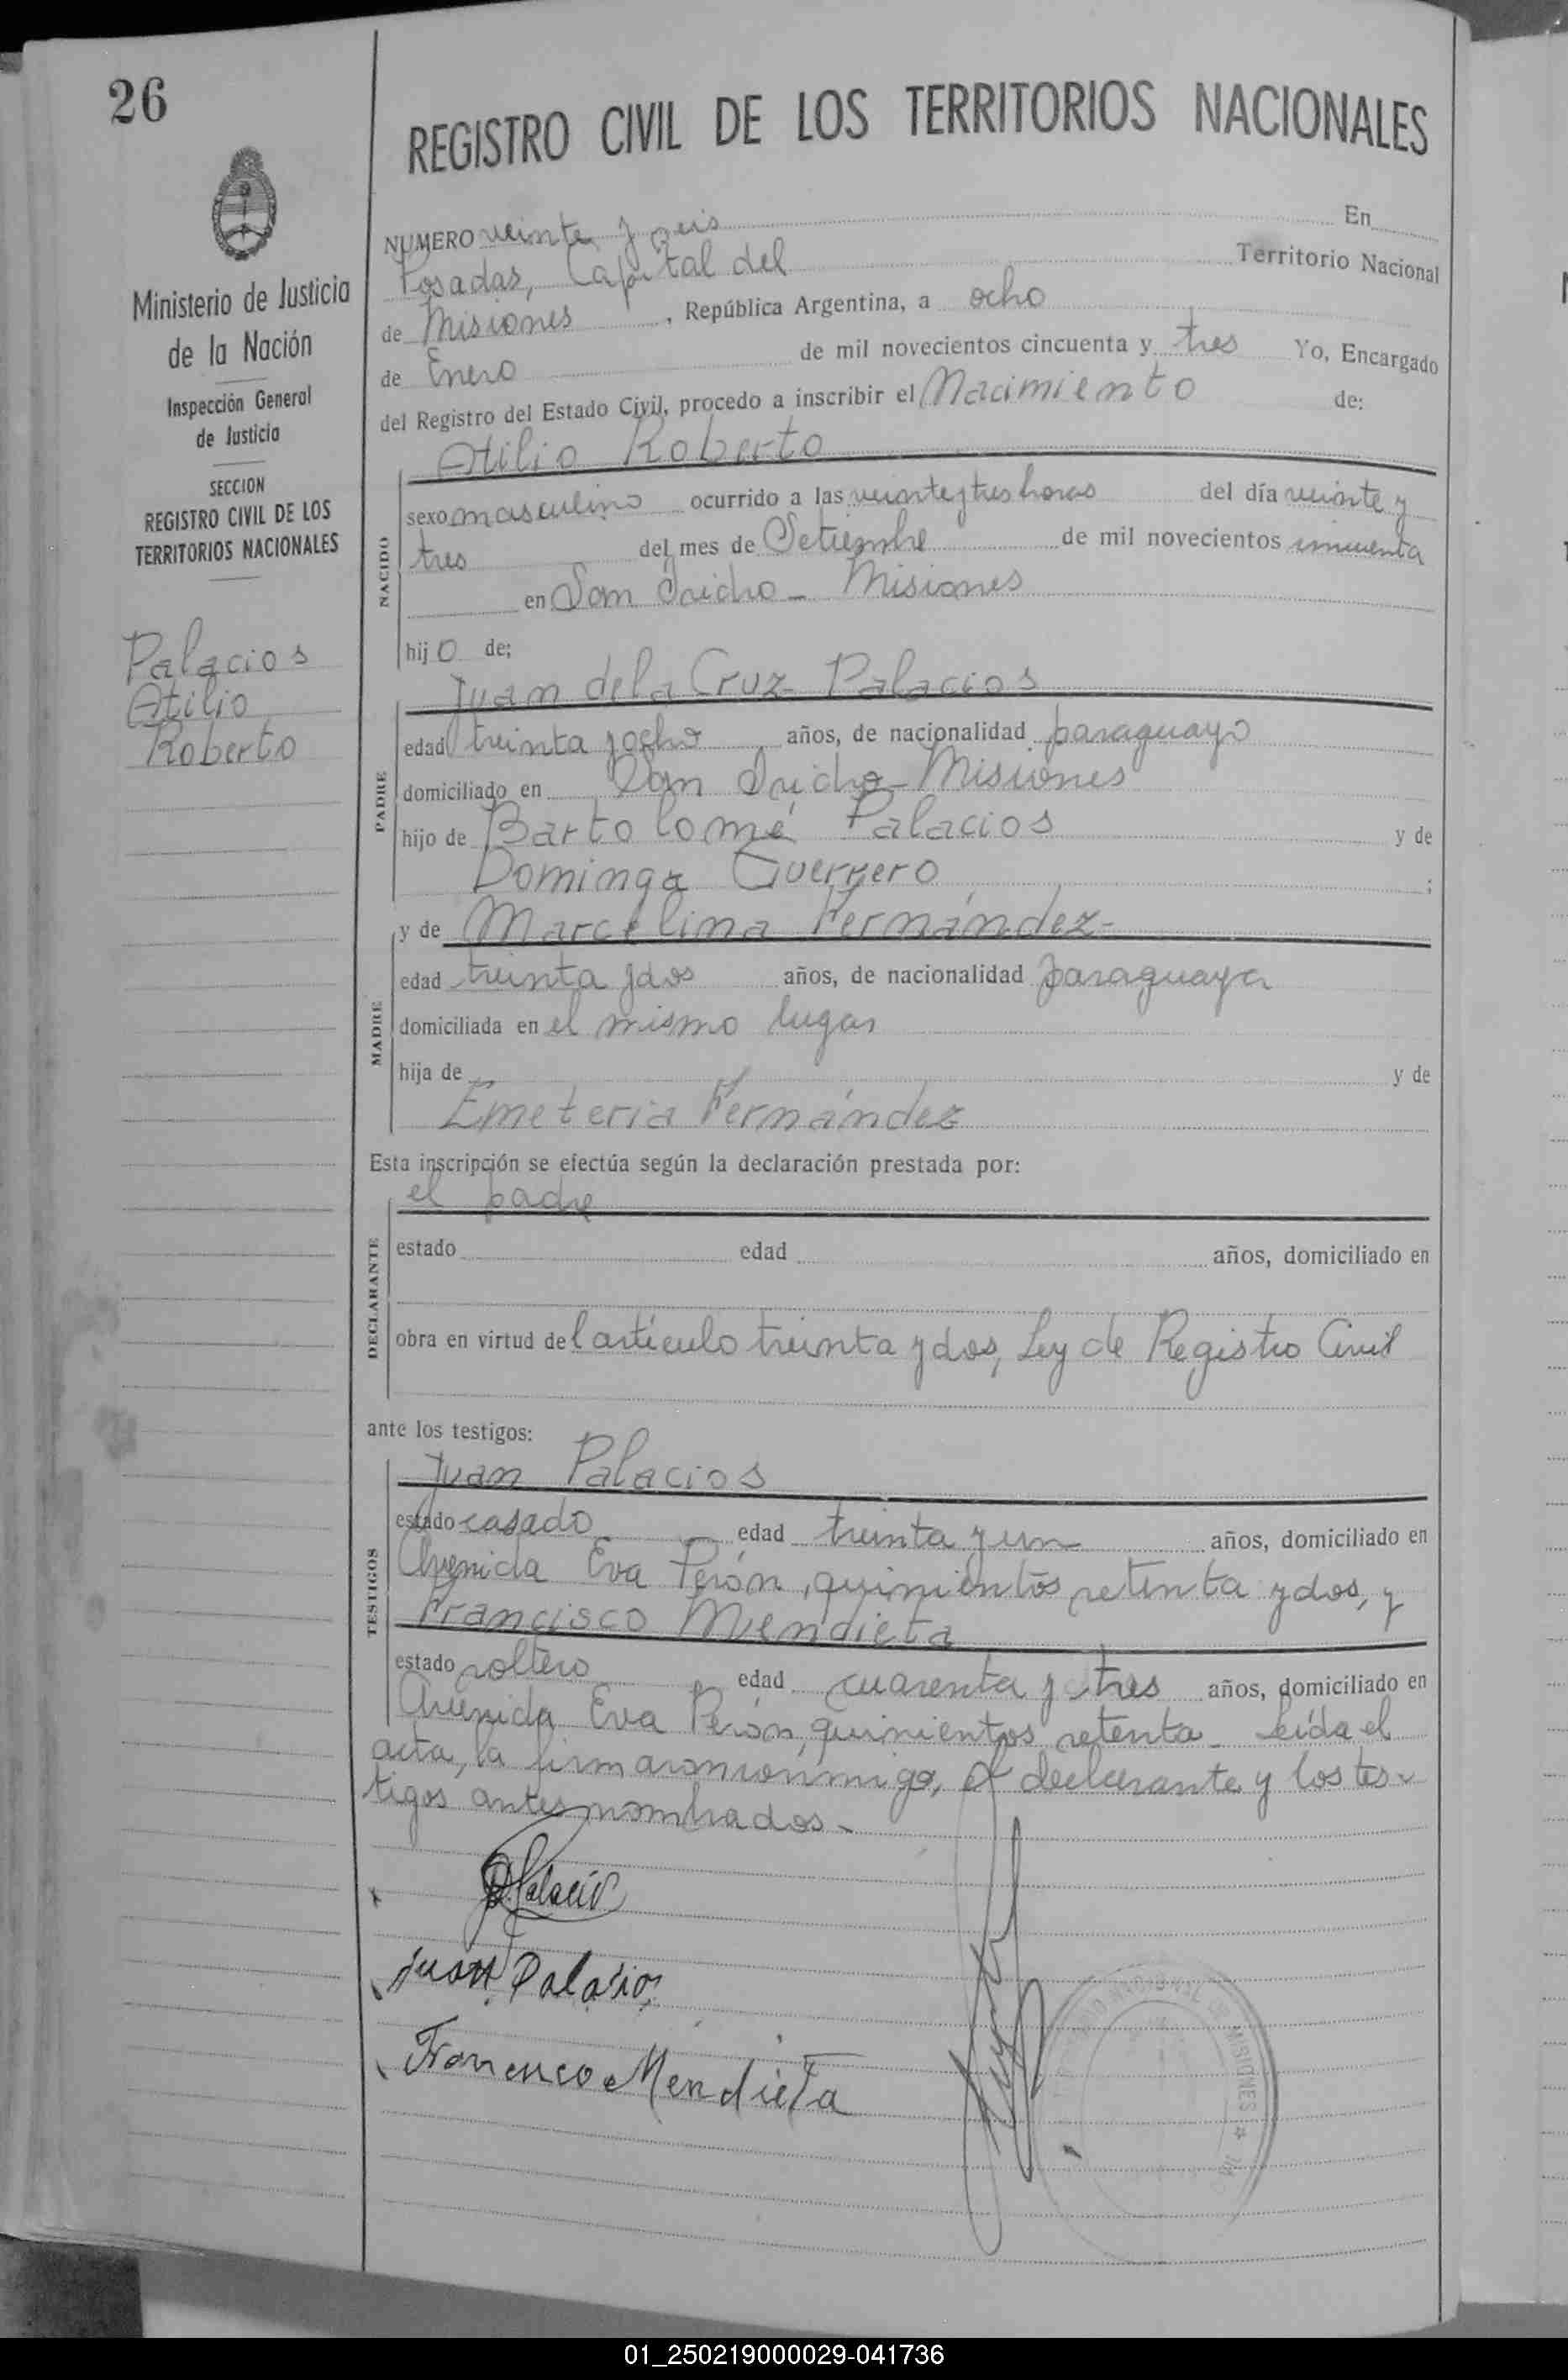 26
REGISTRO CIVIL DE LOS TERRITORIOS NACIONALES
Ministerio de Justicia
de la Nación
Inspección General
de Justicia
SECCION
REGISTRO CIVIL DE LOS
TERRITORIOS NACIONALES
Palacios
Atilio
Roberto
NUMERO veinte y seis En
Posadas, Capital del Territorio Nacional
de Misiones, República Argentina, a ocho
de Enero de mil novecientos cincuenta y tres Yo, Encargado
del Registro del Estado Civil, procedo a inscribir el Nacimiento de:
Atilio Roberto
NACIDO
sexo masculino ocurrido a las veinte y tres horas del día veinte y
tres del mes de Setiembre de mil novecientos cincuenta
en San Isidro - Misiones
hijo de;
Juan de la Cruz Palacios
PADRE
edad treinta y ocho años, de nacionalidad paraguayo
domiciliado en San Isidro - Misiones
hijo de Bartolomé Palacios y de
Dominga Guerrero ;
y de Marcelina Fernández-
MADRE
edad treinta y dos años, de nacionalidad paraguaya
domiciliada en el mismo lugar
hija de y de
Emeteria Fernández
Esta inscripción se efectúa según la declaración prestada por:
el padre
DECLARANTE
estado edad años, domiciliado en
obra en virtud del artículo treinta y dos, Ley de Registro Civil
ante los testigos:
Juan Palacios
TESTIGOS
estado casado edad treinta y un años, domiciliado en
Avenida Eva Perón, quinientos setenta y dos, y
Francisco Mendieta
estado soltero edad cuarenta y tres años, domiciliado en
Avenida Eva Perón, quinientos setenta - Leída el
acta, la firmaron conmigo, el declarante y los tes-
tigos antes nombrados.-
Palacio
Juan Palacios
Francisco Mendieta
NACIONAL DE MISIONES
01_250219000029-041736